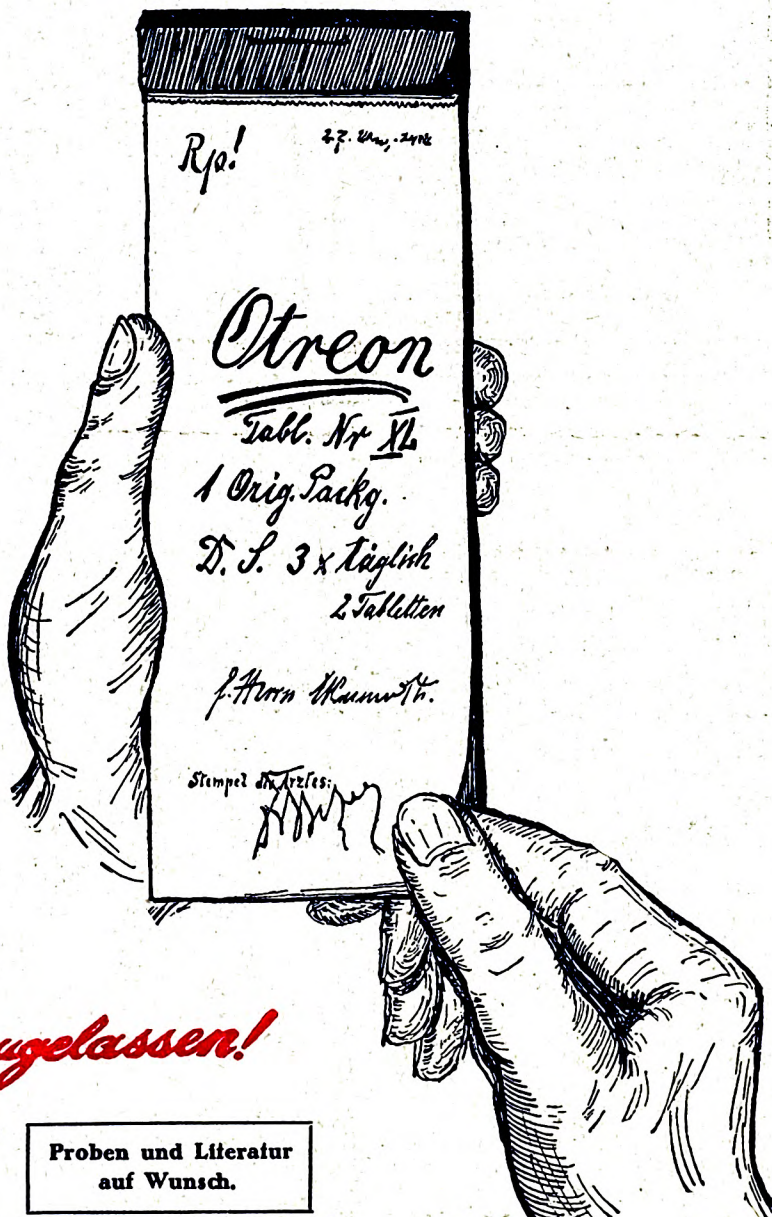 Rp!
Otreon
Tabl. Nr XL
1 Orig. Packg.
D. S. 3 x täglich
2 Tabletten
f. Herrn
Stempel des Arztes:
ugelassen!
Proben und Literatur
auf Wunsch.